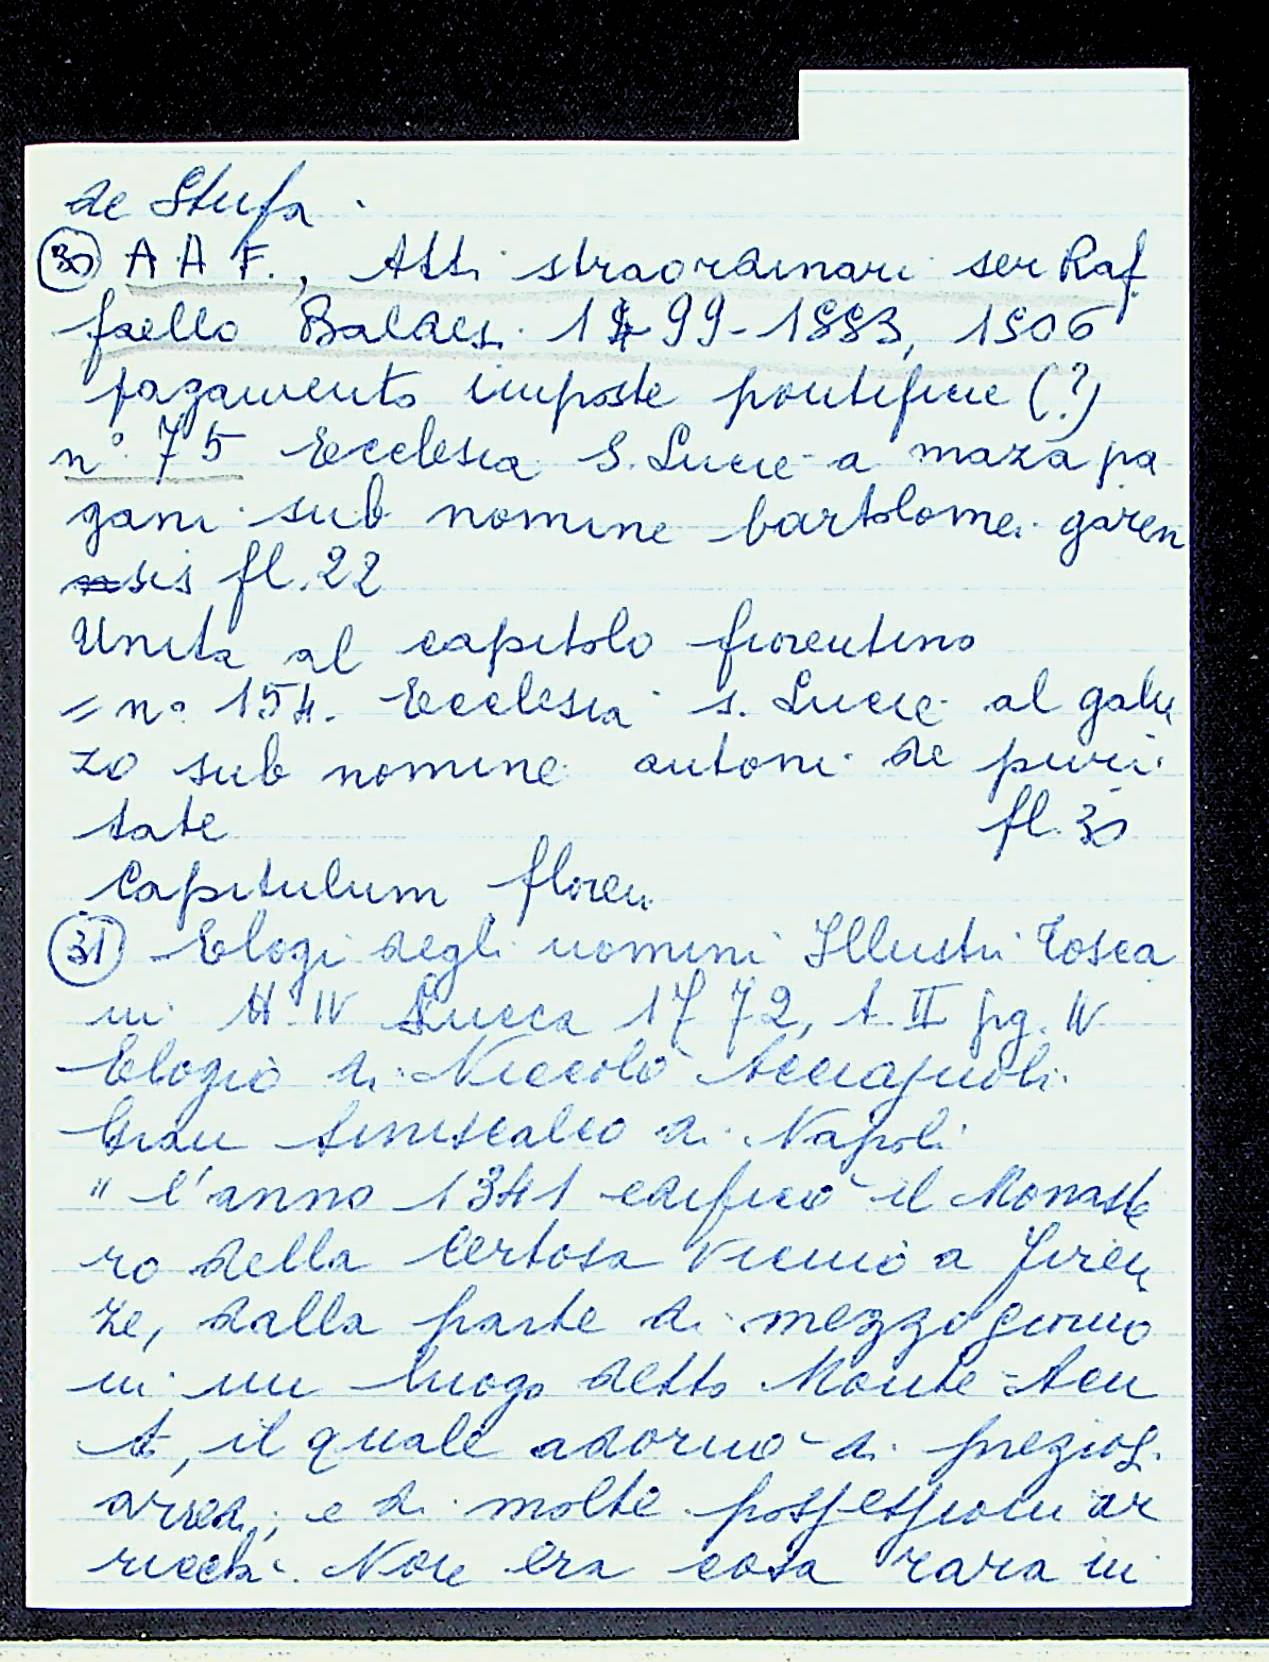 de Stufa.
30 A A F., Atti straordinari ser Raf
faello Baldesi 1499-1553, 1506
pagamento imposte pontificie (?)
n° 75 Ecclesia S. Lucie a maza pa
gani sub nomine bartolomei garen
sis fl. 22
Unita al capitolo fiorentino
= n° 154. Ecclesia s. Lucie al galu
zo sub nomine antoni de
tate fl. 30
Capitulum floren.
31 Elogi degli uomini Illustri Tosca
ni Lucca 1772, t. II pg. IV
Elogio di Niccolò Acciajuoli
Gran Siniscalco di Napoli
" l'anno 1341 edificò il Monaste
ro della Certosa vicino a Firen
ze, dalla parte di mezzogiorno
in un luogo detto Monte-Acu
to, il quale adornò di preziosi
arredi, e di molte possessioni ar
ricchì. Non era cosa rara in